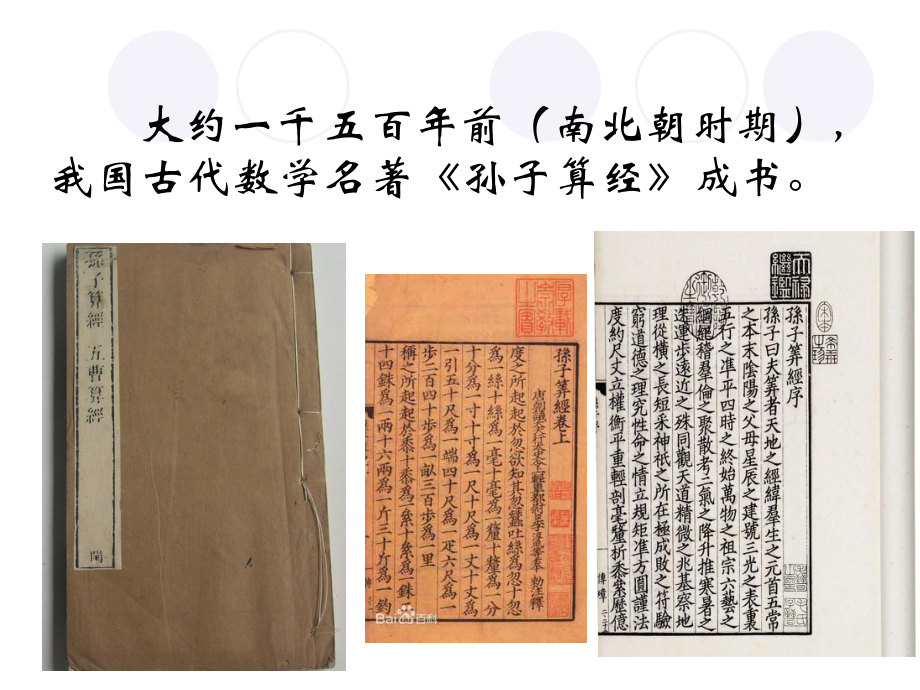 大约一千五百年前（南北朝时期），
我国古代数学名著《孙子算经》成书。
孫子算經 五曹算經
孫子筭經卷上
度之所起起於忽欲知其忽蠶吐絲為忽十忽
為一絲十絲為一毫十毫為一釐十釐為一分
十分為一寸十寸為一尺十尺為一丈十丈為
一引五十尺為一端四十尺為一疋六尺為一
步二百四十步為一畝三百步為一里
稱之所起起於黍十黍為一絫十絫為一銖
十四銖為一兩十六兩為一斤三十斤為一鈞
Bai百科
孫子筭經序
孫子曰夫筭者天地之經緯羣生之元首五常
之本末陰陽之父母星辰之建號三光之表裏
五行之準平四時之終始萬物之祖宗六藝之
綱紀稽羣倫之聚散考二氣之降升推寒暑之
迭運步遠近之殊同觀天道精微之兆基察地
理從橫之長短采神祇之所在極成敗之符驗
窮道德之理究性命之情立規矩準方圓謹法
度約尺丈立權衡平重輕剖毫釐析黍絫歷億